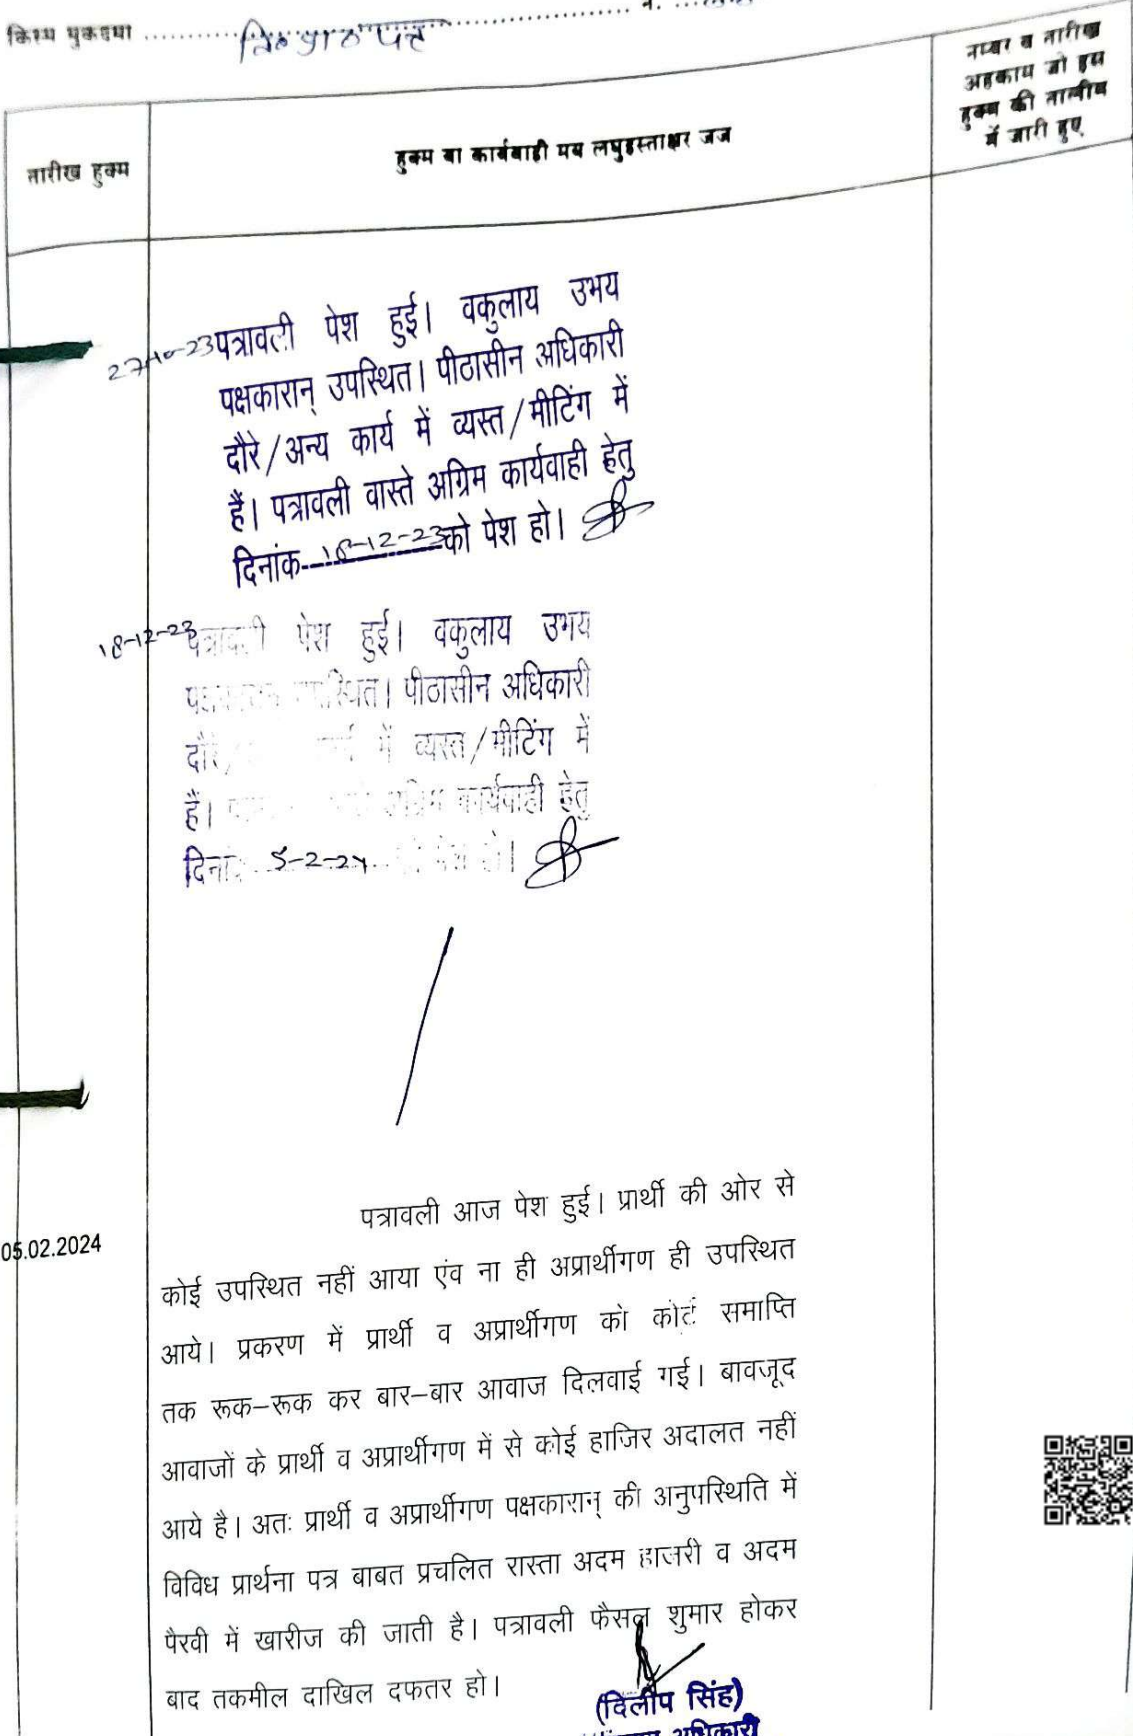 किस्म मुकदमा
वि० प्रा० पत्र
तारीख हुक्म
हुक्म या कार्यवाही मय लघुहस्ताक्षर जज
नम्बर व तारीख
अहकाम जो इस
हुक्म की तालीम
में जारी हुए
27-10-23 पत्रावली पेश हुई। वकुलाय उभय
पक्षकारान् उपस्थित। पीठासीन अधिकारी
दौरे/अन्य कार्य में व्यस्त/मीटिंग में
हैं। पत्रावली वास्ते अग्रिम कार्यवाही हेतु
दिनांक 18-12-23 को पेश हो।
18-12-23 पत्रावली पेश हुई। वकुलाय उभय
उपस्थित। पीठासीन अधिकारी
दौरे/ कार्य में व्यस्त/मीटिंग में
हैं। अग्रिम कार्यवाही हेतु
दिनांक 5-2-24 को पेश हो।
05.02.2024
पत्रावली आज पेश हुई। प्रार्थी की ओर से
कोई उपस्थित नहीं आया एंव ना ही अप्रार्थीगण ही उपस्थित
आये। प्रकरण में प्रार्थी व अप्रार्थीगण को कोर्ट समाप्ति
तक रूक–रूक कर बार–बार आवाज दिलवाई गई। बावजूद
आवाजों के प्रार्थी व अप्रार्थीगण में से कोई हाजिर अदालत नहीं
आये है। अतः प्रार्थी व अप्रार्थीगण पक्षकारान् की अनुपस्थिति में
विविध प्रार्थना पत्र बाबत प्रचलित रास्ता अदम हाजरी व अदम
पैरवी में खारीज की जाती है। पत्रावली फैसल शुमार होकर
बाद तकमील दाखिल दफतर हो।
(दिलीप सिंह)
अधिकारी